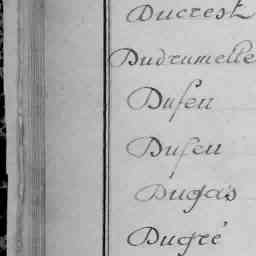 Ducrest
Dudrumelle
Dufeu
Dufeu
Dugas
Dugré